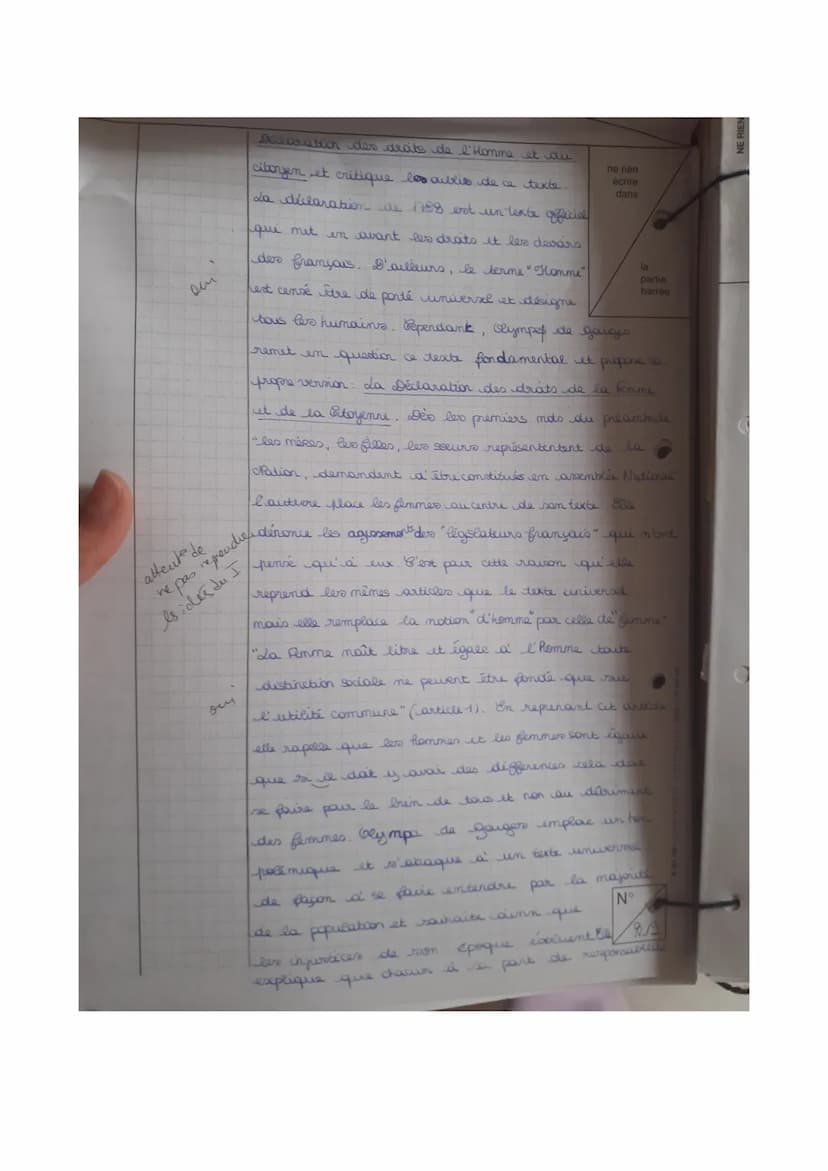 Déclaration des droits de l'Homme et du
citoyen et critique les oublis de ce texte.
La déclaration de 1789 est un texte officiel
que met en avant les droits et les devoirs
des français. D'ailleurs, le terme "Homme"
est censé être de porté universel et désigne
tous les humains. Cependant, Olympe de Gouges
remet en question ce texte fondamental et propose sa
propre version: La Déclaration des droits de la Femme
et de la Citoyenne. Dès les premiers mots du préambule
"les mères, les filles, les soeurs représentent de la
Nation, demandent d'être constitués en assemblée Nationale
l'autrice place les femmes au centre de son texte. Elle
dénonce les des "législateurs français" qui n'ont
pensé qu'à eux. C'est pour cette raison qu'elle
reprend les mêmes articles que le texte universel
mais elle remplace la notion "d'homme" par celle de "femme"
"La Femme naît libre et égale à l'Homme toute
distinction sociale ne peuvent être fondé que sur
l'utilité commune" (article 1). En reprenant cet article
elle rapelle que les hommes et les femmes sont égaux
que si il doit y avoir des différences cela doit
se faire pour le bien de tous et non au détriment
des femmes. Olympe de Gouges emploie un ton
polémique et s'attaque à un texte universel
de façon à se faire entendre par la majorité
de la population et souhaite ainsi que
les injustices de son époque
explique que chacun à sa part de responsabilité
oui
attente de
ne pas reprendre
les idées du I
oui
ne rien
écrire
dans
la
partie
barrée
N°
NE RIEN